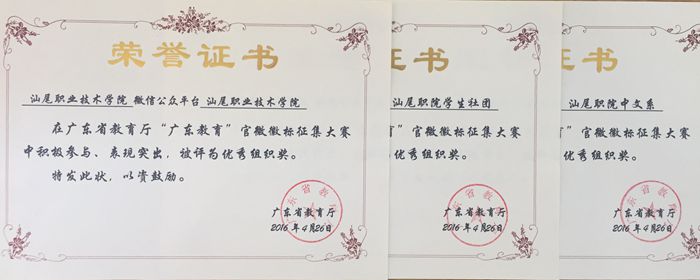 荣誉证书
汕尾职业技术学院 微信公众平台 汕尾职业技术学院
在广东省教育厅“广东教育”官微徽标征集大赛
中积极参与、表现突出，被评为优秀组织奖。
特发此状，以资鼓励。
广东省教育厅
2016 年 4月26日
书
汕尾职院学生社团
”官微徽标征集大赛
秀组织奖。
广东省教育厅
2016 年 4月26日
书
汕尾职院中文系
”官微徽标征集大赛
秀组织奖。
广东省教育厅
2016 年 4月26日